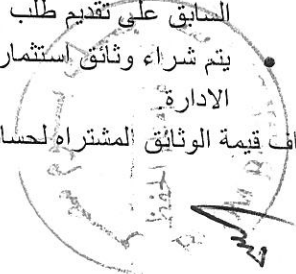 السابق على تقديم طلب
• يتم شراء وثائق استثمار
الادارة.
قيمة الوثائق المشتراه لحسا